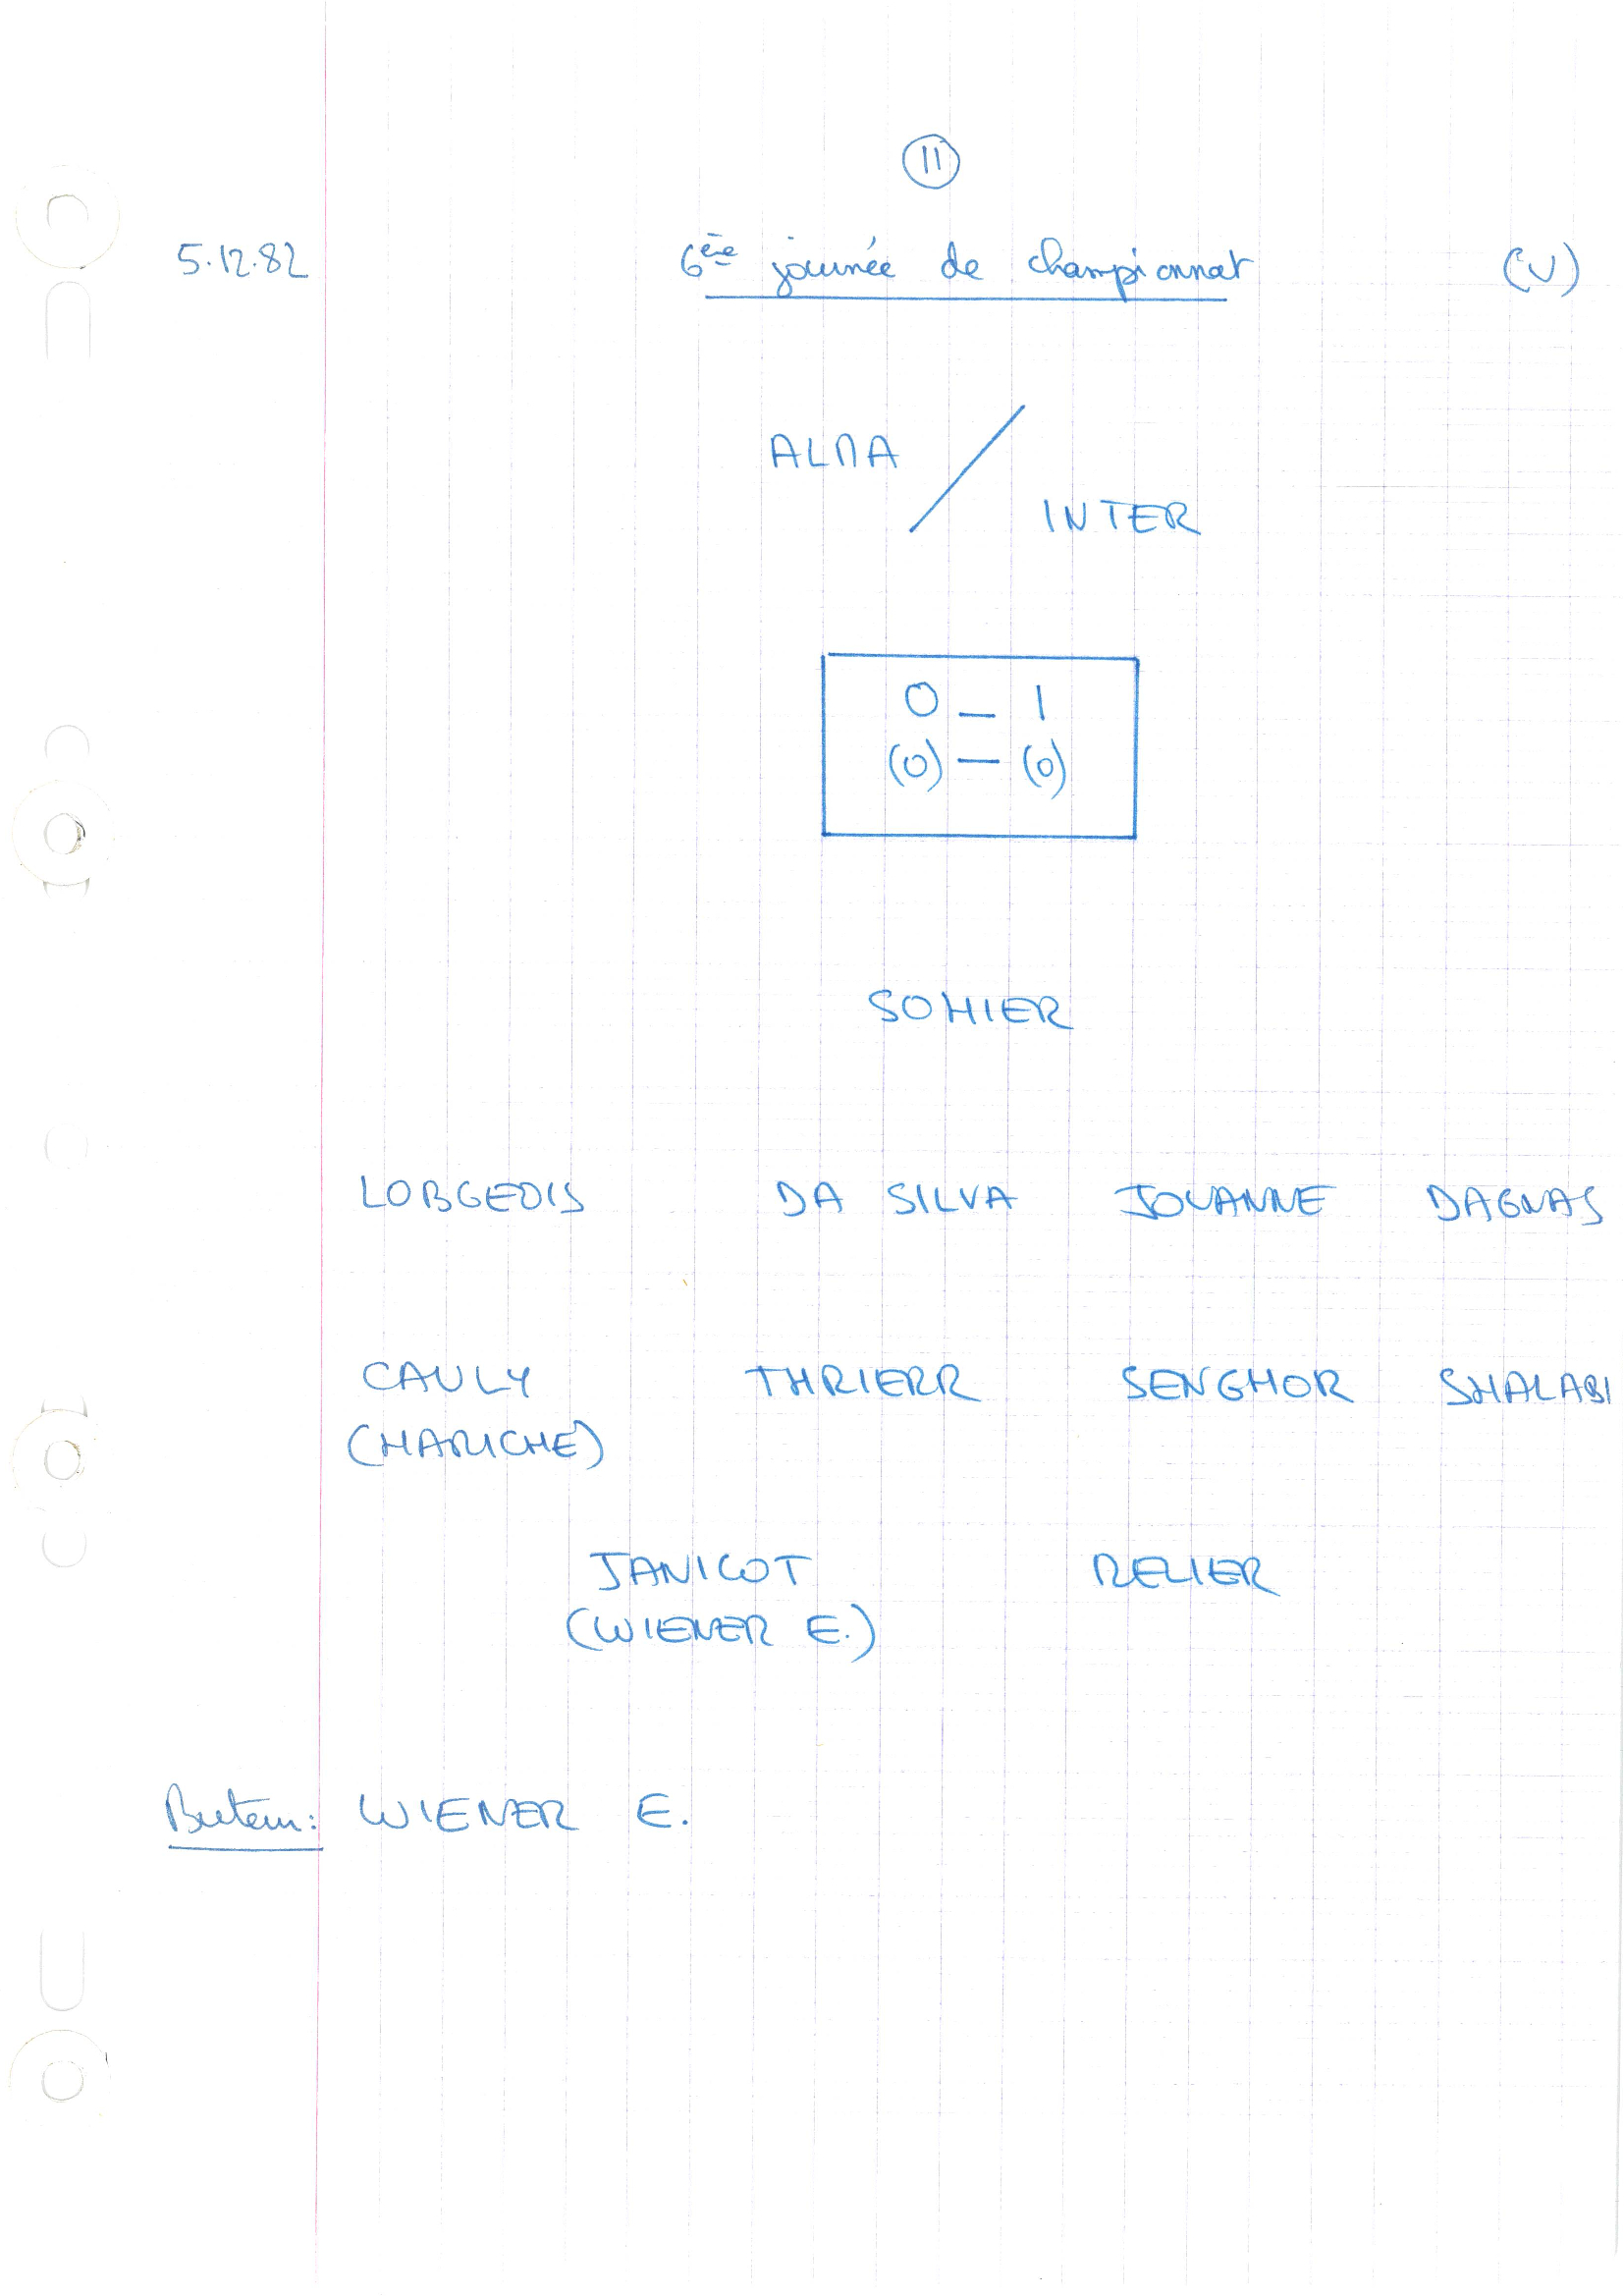 11
5.12.82 6ère journée de championnat (V)
ALMA / INTER
0 – 1
(0) – (0)
SOHIER
LOBGEOIS DA SILVA JOUANNE DAGNAS
CAULY THRIERR SENGHOR SHALABI
(HARICHE)
JANICOT RELIER
(WIENER E.)
Buteur: WIENER E.